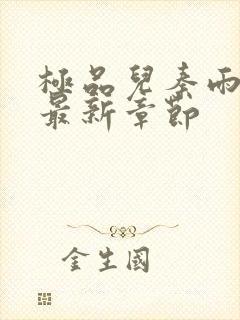 極品兒秦雨
最新章節
金生國